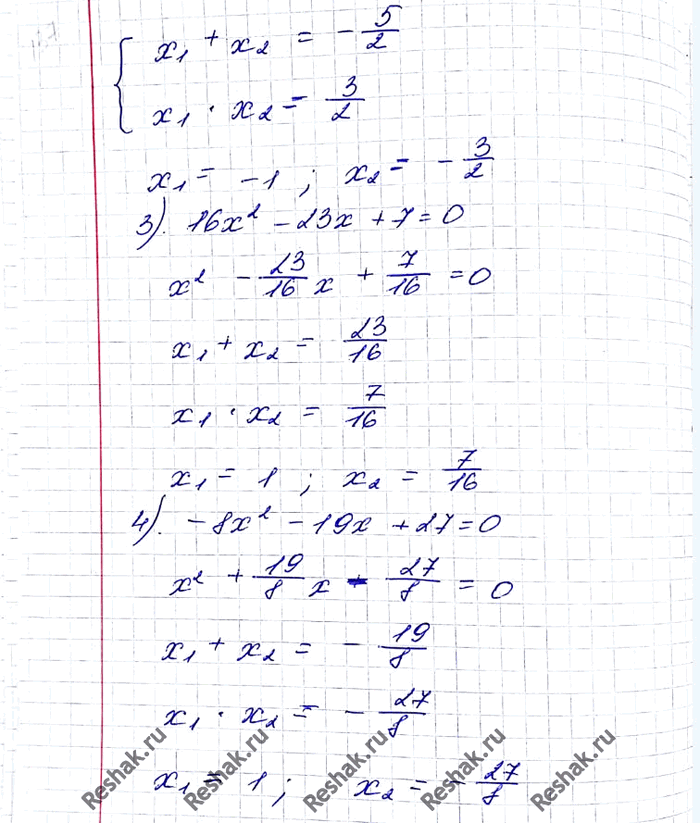 { x₁ + x₂ = - 5/2
x₁ · x₂ = 3/2
x₁ = -1 ; x₂ = - 3/2
3). 16x² - 23x + 7 = 0
x² - 23/16 x + 7/16 = 0
x₁ + x₂ = 23/16
x₁ · x₂ = 7/16
x₁ = 1 ; x₂ = 7/16
4). -8x² - 19x + 27 = 0
x² + 19/8 x - 27/8 = 0
x₁ + x₂ = - 19/8
x₁ · x₂ = - 27/8
x₁ = 1 ; x₂ = - 27/8
Reshak.ru Reshak.ru Reshak.ru Reshak.ru Reshak.ru